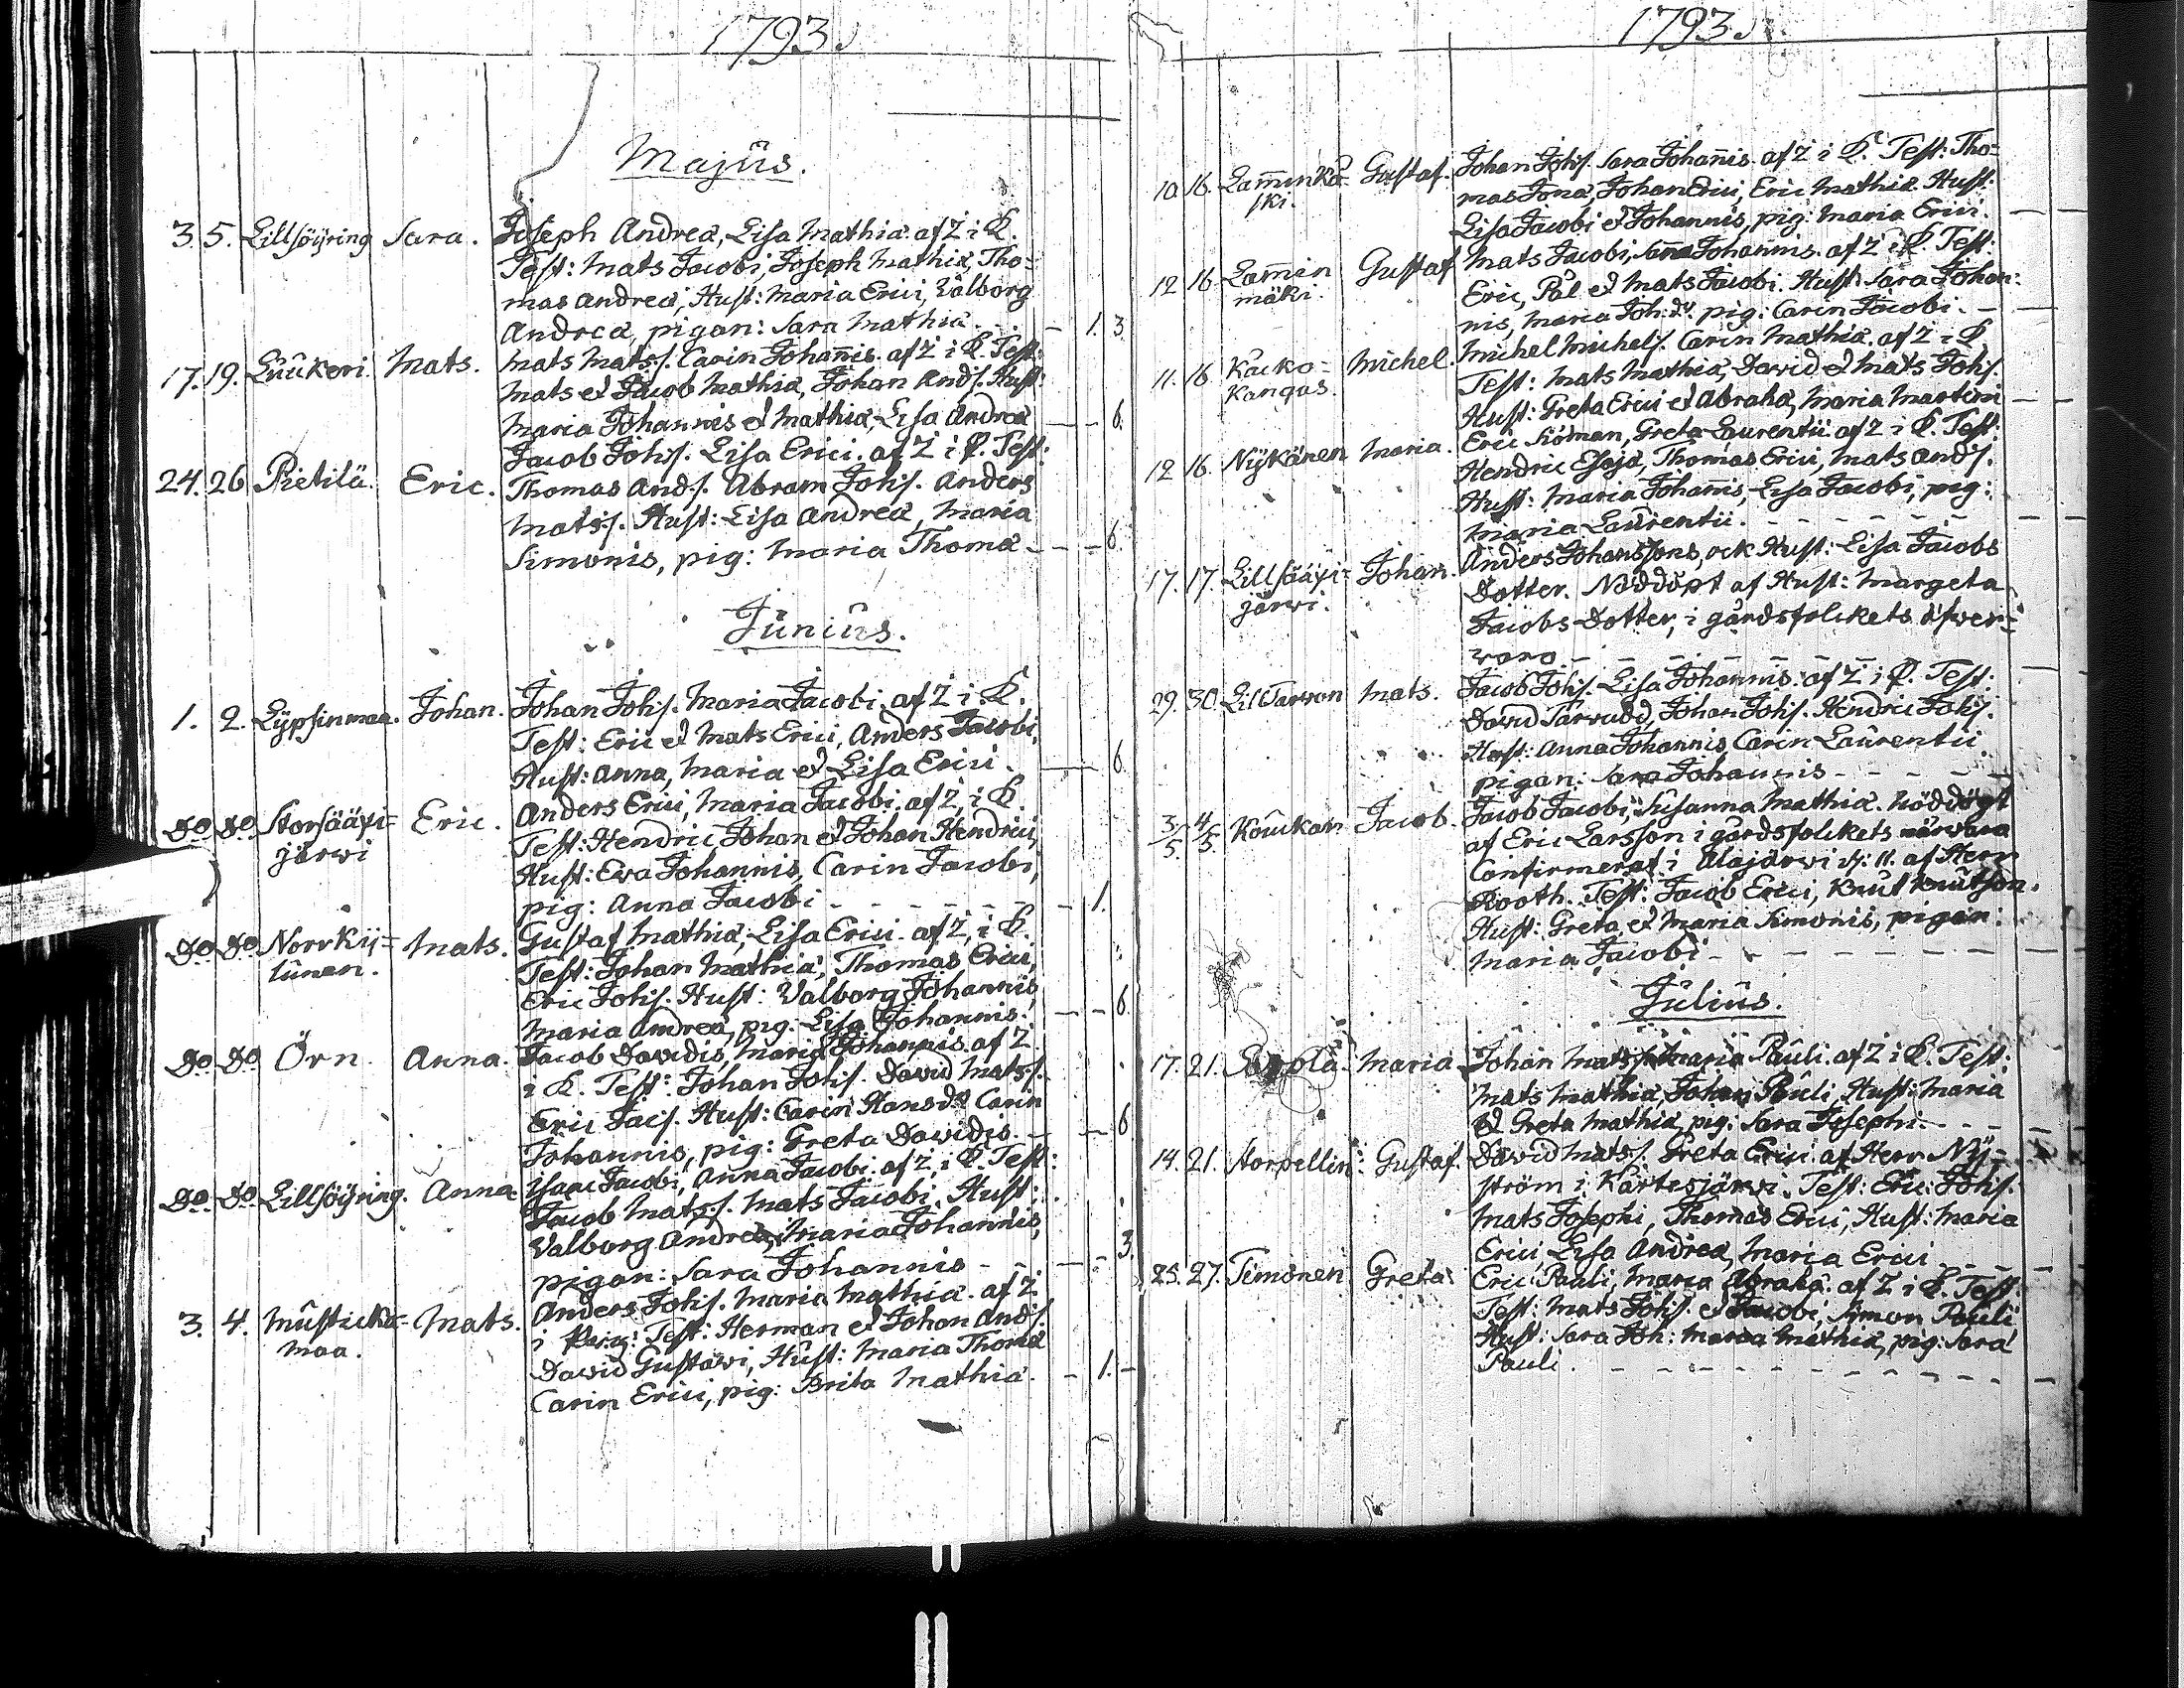 1793.
Majus.
3. 5. Lillsöyring Sara. Joseph Andreæ, Lisa Mathiæ. af Z i K.
Test: Mats Jacobi, Joseph Mathiæ, Tho=
mas Andreæ, Hust: Maria Erici, Valborg
Andreæ, pigan: Sara Mathiæ - 1. 3.
17. 19. Luukeri. Mats. Mats Matss. Carin Johanis. af Z i K. Test:
Mats et Jacob Mathiæ, Johan Ands. Hust:
Maria Johannis et Mathiæ, Lisa Andreæ - - 6.
24. 26 Pietilä. Eric. Jacob Johs. Lisa Erici. af Z i K. Test:
Thomas Ands. Abram Johs. Anders
Matss. Hust: Lisa Andreæ, Maria
Simonis, pig: Maria Thomæ - - 6.
Junius.
1. 2. Lypsinmaa. Johan. Johan Johs. Maria Jacobi. af Z i K.
Test: Eric et Mats Erici, Anders Jacobi,
Hust: Anna, Maria et Lisa Erici. - 6.
Do Do Storsääxi= Eric. Anders Erici, Maria Jacobi. af Z, i K.
järwi Test: Hendric Johan et Johan Hendrici,
Hust: Eva Johannis, Carin Jacobi,
pig: Anna Jacobi - - - - - - 1.
Do Do Norrky= Mats. Gustaf Mathiæ, Lisa Erici. af Z, i K.
lunen. Test: Johan Mathiæ, Thomas Erici,
Eric Johs. Hust: Valborg Johannis,
Maria Andreæ, pig: Lisa Johannis. - - 6
Do Do Örn. Anna. Jacob Davidis, Maria Johannis. af Z.
i K. Test: Johan Johs. David Matss.
Eric Jacs. Hust: Carin Hansdr Carin
Johannis, pig: Greta Davidis - - 6
Do. Do Lillsöyring. Anna Isaac Jacobi, Anna Jacobi. af Z. i K. Test:
Jacob Matss. Mats Jacobi, Hust:
Valborg Andreæ, Maria Johannis,
pigan: Sara Johannis - - - 3.
3. 4. Mustickä= Mats. Anders Johs. Maria Mathiæ. af Z.
maa. i Test: Herman et Johan Ands.
David Gustavi, Hust: Maria Thomæ
Carin Erici, pig: Brita Mathiæ. - 1. -
1793.
10. 16. Laminko= Gustaf. Johan Johs. Sara Johanis. af Z i K. Test: Tho=
ski. mas Johan Erici, Eric Mathiæ. Hust:
Lisa Jacobi et Johannis, pig: Maria Erici.
12 16 Lamin Gustaf Mats Jacobi, Johannis. af Z i K. Test:
mäki. Eric, Pål et Mats Jacobi. Hust: Sara Johan:
nis, Maria Joh:dr pig: Carin Jacobi.
11. 16. Kacko= Michel. Michel Michels. Carin Mathiæ. af Z i K.
kangas. Test: Mats Mathiæ, David et Mats Johs.
Hust: Greta Erici et Abrahæ, Maria Martini
12 16. Nykänen Maria. Eric Greta Laurentii. af Z i K. Test:
Hendric Esajæ, Thomas Erici, Mats Ands.
Hust: Maria Johanis, Lisa Jacobi, pig:
Maria Laurentii. - - - - - -
17. 17. Lillsääxi= Johan. Anders Johanssons, ock Hust: Lisa Jacobs
järwi. Dotter. Nöddöpt af Hust: Margeta
Jacobs Dotter, i gårdsfolckets öfwer=
waro. - - - - - -
29. 30. Lill Tarvon Mats. Jacob Johs. Lisa Johannis. af Z i K. Test:
David Johan Johs. Hendric Johs.
Hust: Anna Johannis, Carin Laurentii,
pigan: Sara Johannis - - - -
3/5. 4/5. Koukan Jacob. Jacob Jacobi, Susanna Mathiæ. Nöddöpt
af Eric Larsson i gårdsfolckets närwara
Confirmerat i Alajärwi d: 11. af Herr
Rooth. Test: Jacob Erici, Knut Knutson.
Hust: Greta et Maria Simonis, pigan:
Maria Jacobi - - - - - -
Julius.
17. 21. Maria Johan Matss. Maria Pauli. af Z i K. Test:
Mats Mathiæ, Johan Pauli, Hust: Maria
et Greta Mathiæ, pig: Sara Josephi - - -
14. 21. Gustaf. David Matss. Greta Erici. af Herr Ny=
ström i Kortesjärwi. Test: Eric Johs.
Mats Josephi, Thomas Erici, Hust: Maria
Erici, Lisa Andreæ, Maria Erici - -
25. 27. Timonen Greta Eric Pauli, Maria Abrahæ. af Z i K. Test:
Test: Mats Johs. et Jacobi, Simon Pauli
Hust: Sara Joh: Maria Mathiæ, pig: Sara
Pauli. - - - - - - - -